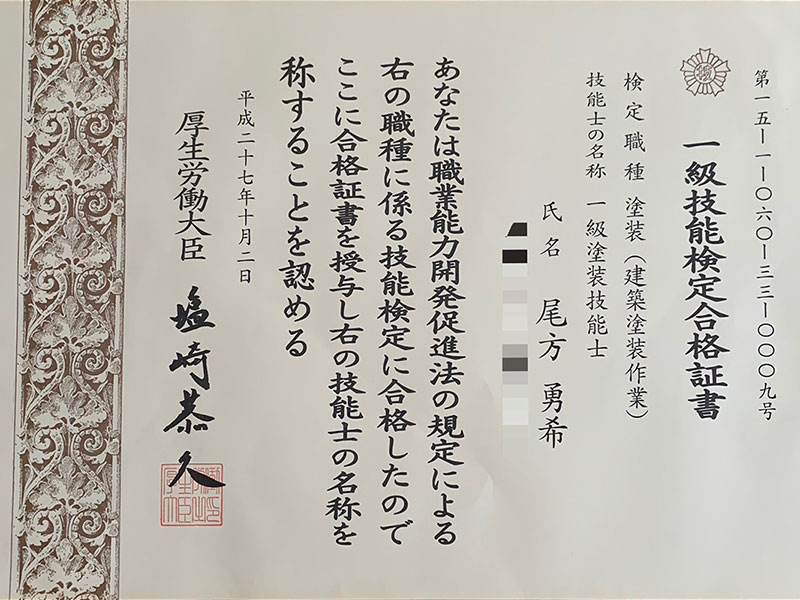 第一五―一―〇六〇―三三―〇〇〇九号
一級技能検定合格証書
検定職種 塗装（建築塗装作業）
技能士の名称 一級塗装技能士
氏名 尾方 勇希
あなたは職業能力開発促進法の規定による
右の職種に係る技能検定に合格したので
ここに合格証書を授与し右の技能士の名称を
称することを認める
平成二十七年十月二日
厚生労働大臣 塩崎恭久